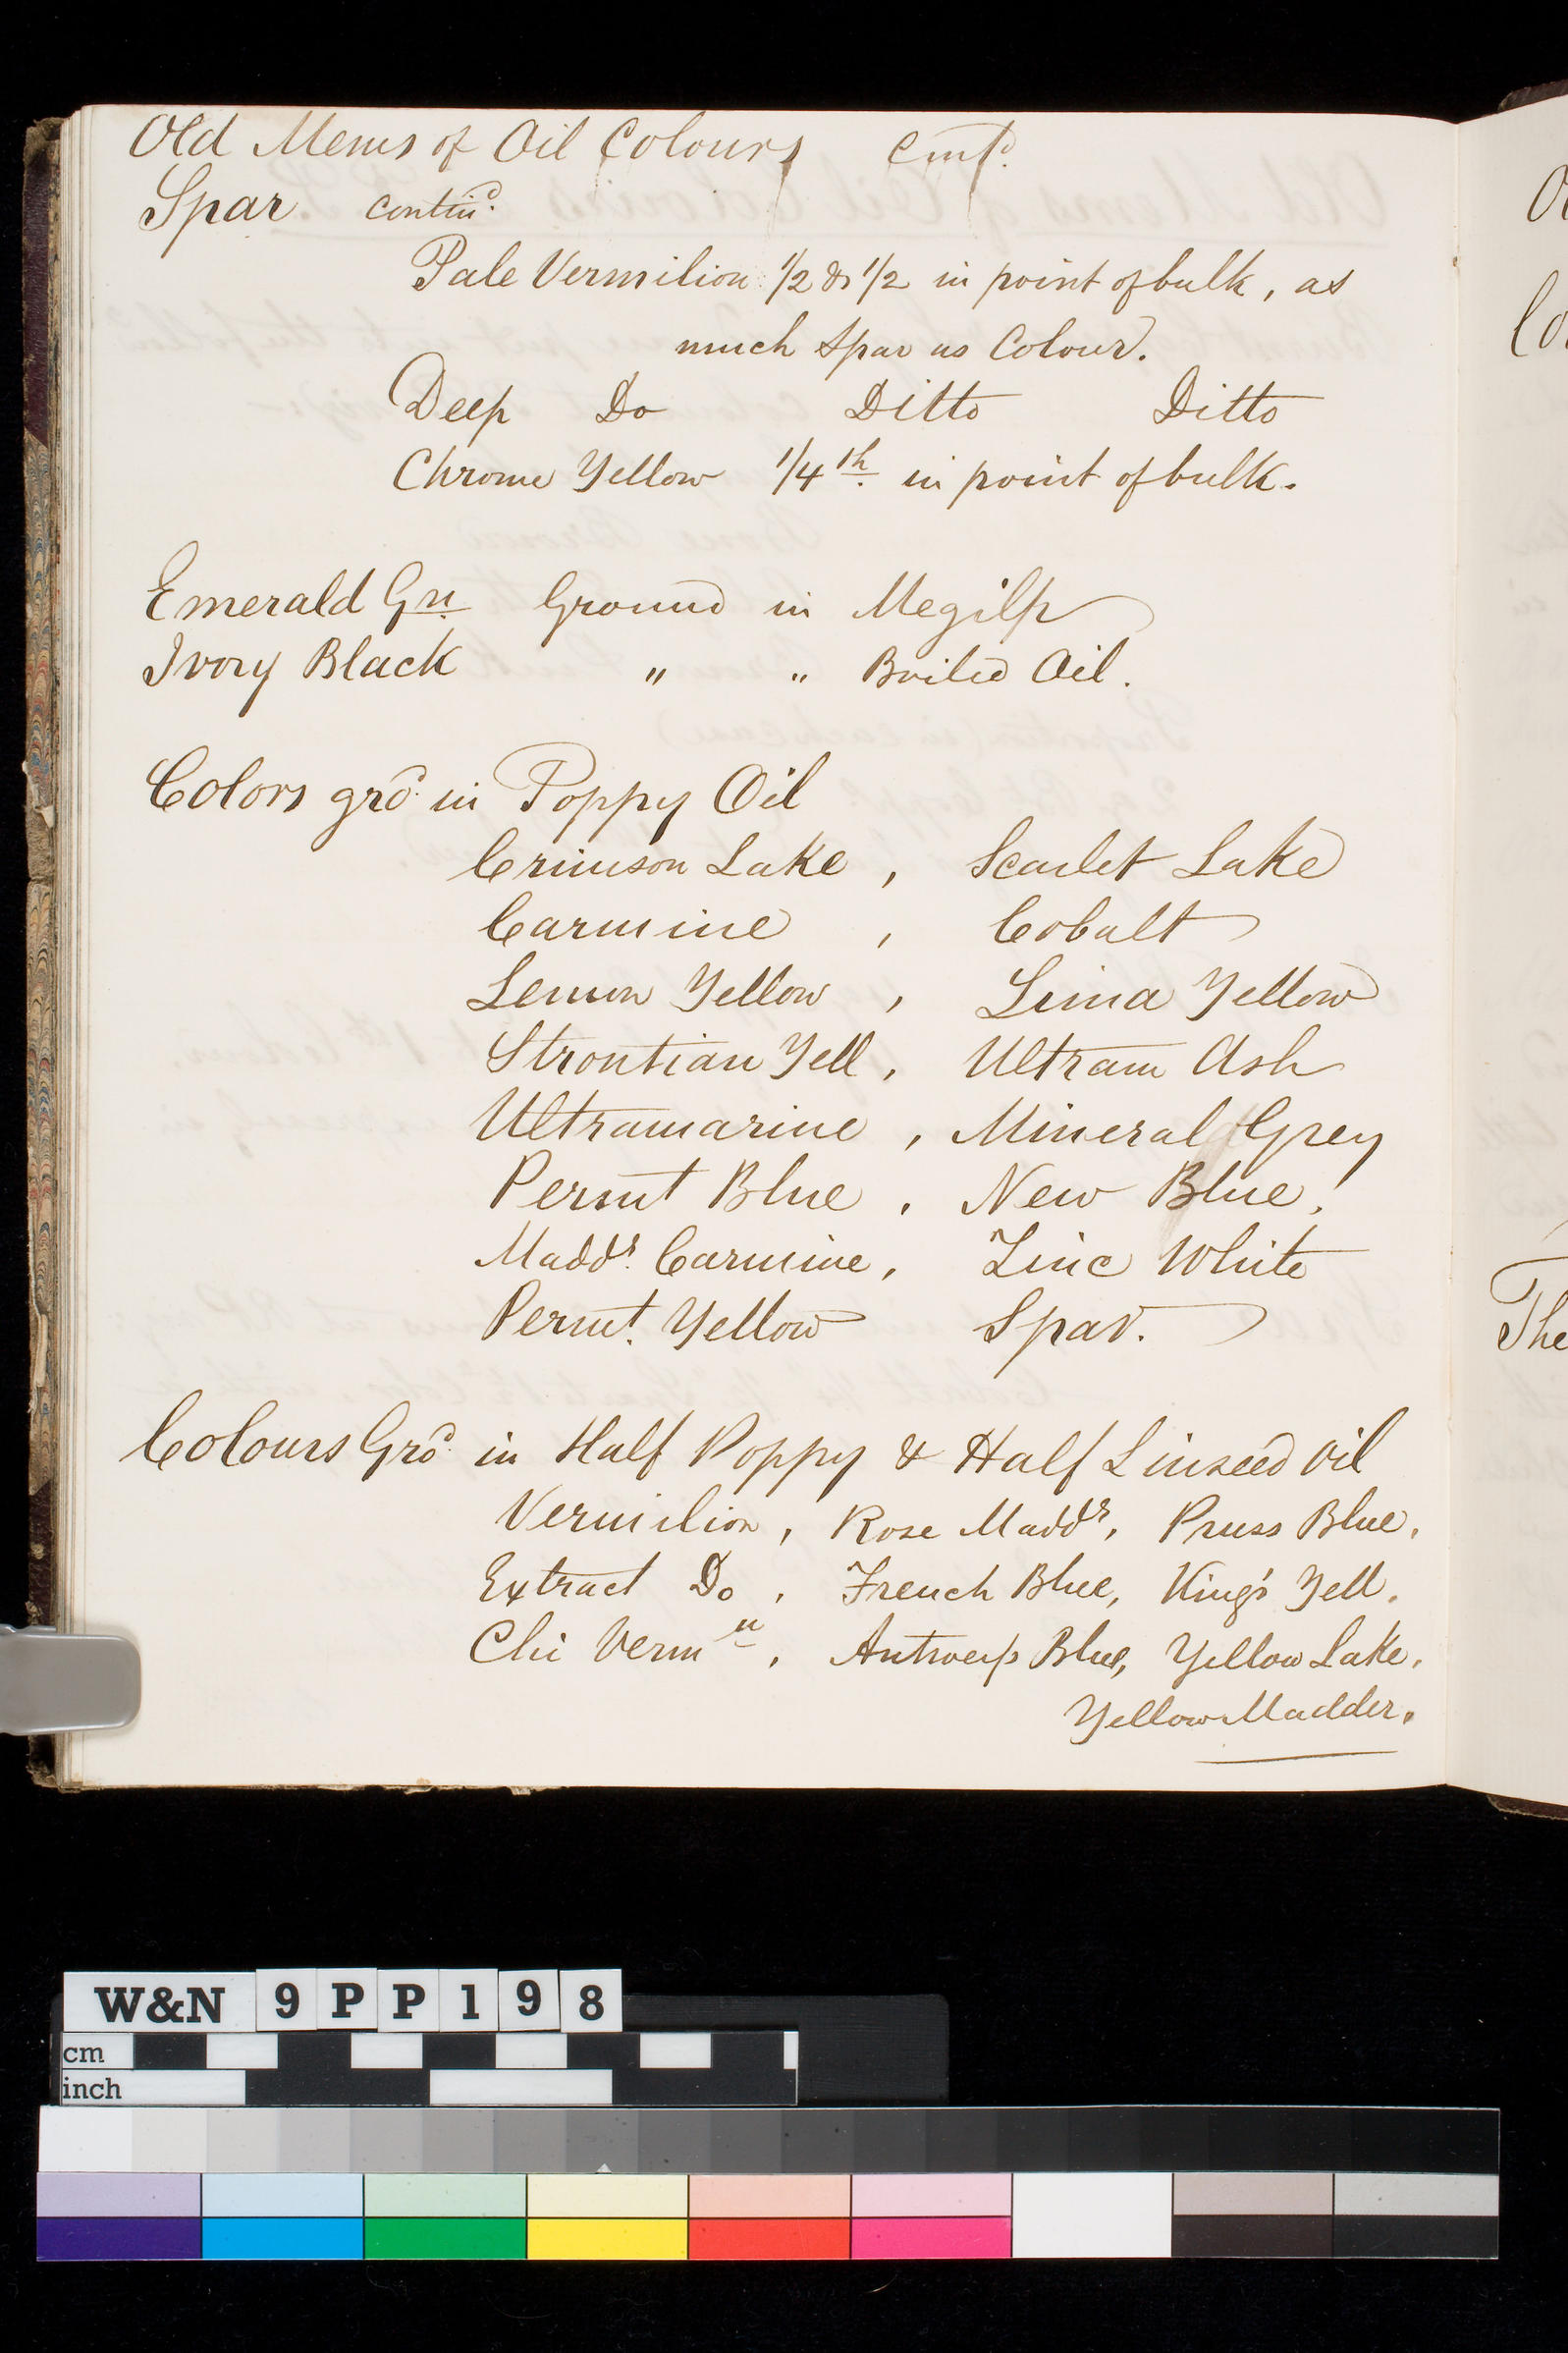 Old Mems of Oil Colours contd.
Spar contind.
Pale Vermilion 1/2 & 1/2 in point of bulk, as
much Spar as Colour.
Deep Do Ditto Ditto
Chrome Yellow 1/4th. in point of bulk.
Emerald Grn. Ground in Megilp
Ivory Black " " Boiled Oil.
Colors grd. in Poppy Oil
Crimson Lake , Scarlet Lake
Carmine , Cobalt
Lemon Yellow , Lima Yellow
Strontian Yell , Ultram Ash
Ultramarine , Mineral Grey
Permt Blue , New Blue,
Maddr. Carmine, Zinc White
Permt. Yellow Spar.
Colours Grd. in Half Poppy & Half Linseed Oil
Vermilion , Rose Maddr, Pruss Blue,
Extract Do , French Blue, King's Yell.
Chi Vermn , Antwerp Blue, Yellow Lake,
Yellow Madder.
W&N 9PP198
cm
inch